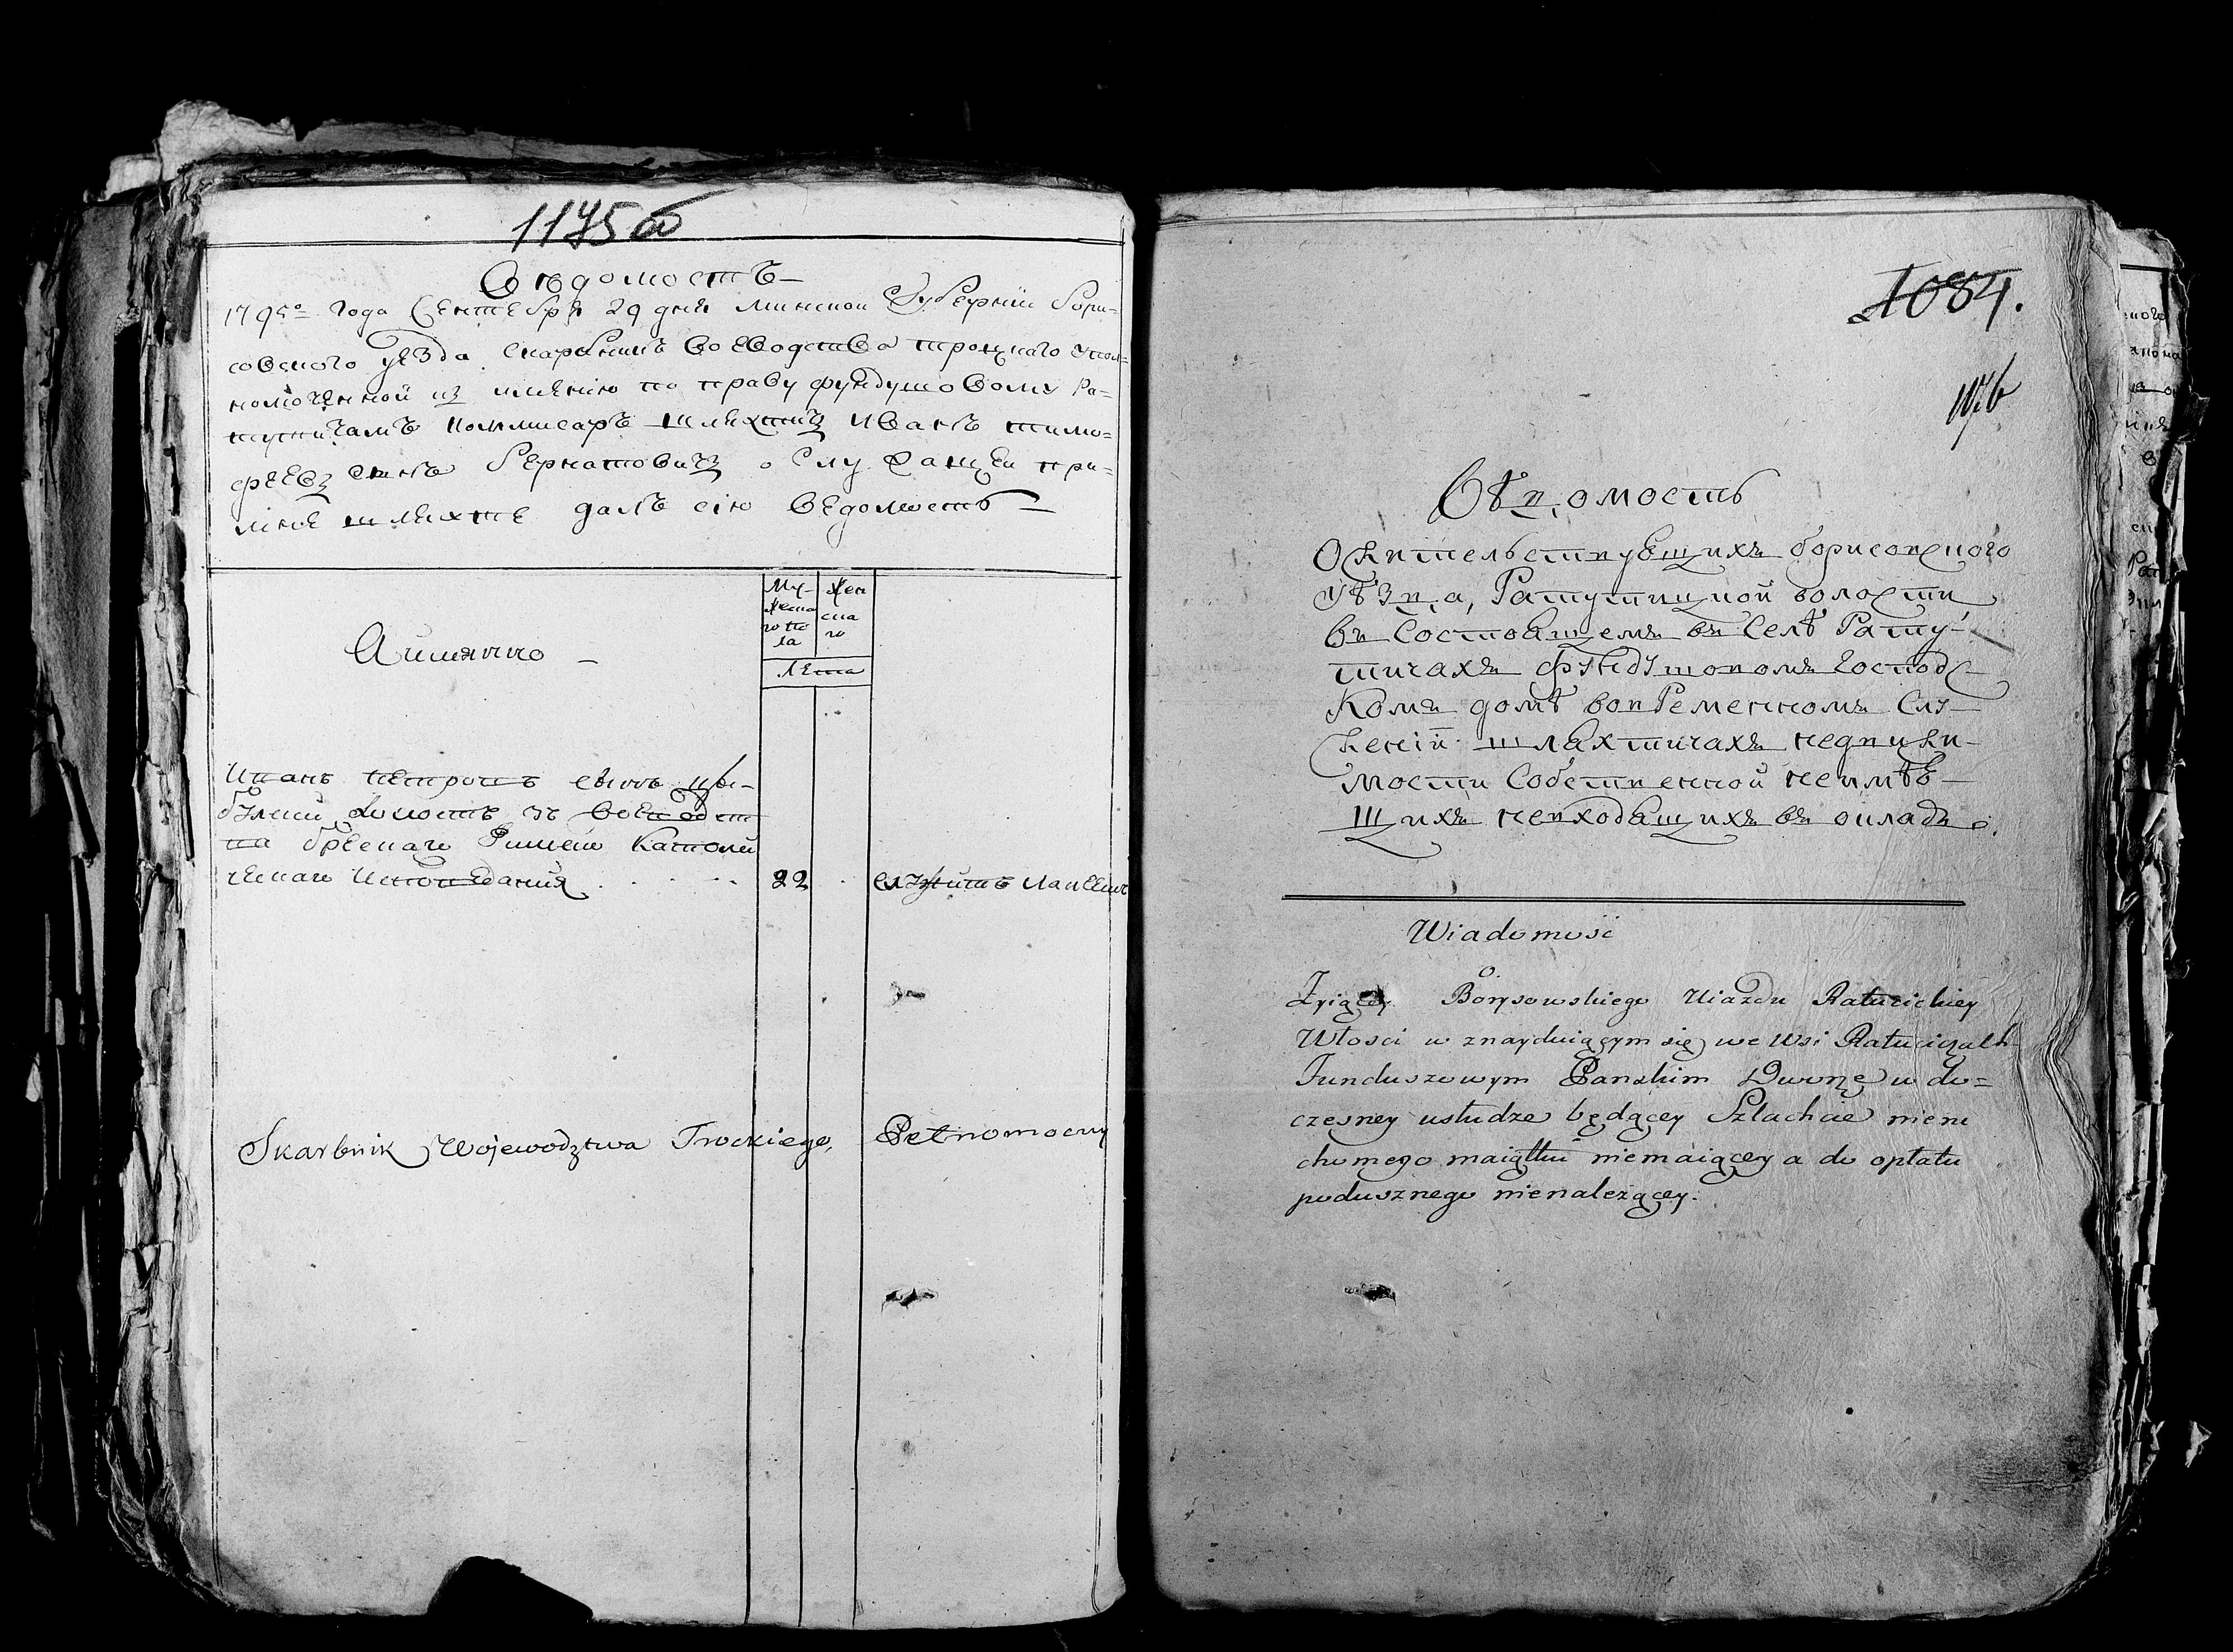 1175 об
Вѣдомость
1795го года Сентебря 29 дня Минской Губерніи Бори-
совского уезда скарбникъ воеводства троцкаго упол-
номоченной из имѣнію по праву фундушовому Ра-
тутичамъ коммисаръ шляхтичъ Иванъ тимо-
фѣевъ сынъ Бернатовичъ о служащей при
мнѣ шляхте далъ сію ведомость
А имянно
Му-
жеска
го по
ла
Жен
ска
го
Лета
Иванъ Петровъ сынъ
з воеводст
ва брескаго Римско Католи
ческаго исповедания 22 служитъ
Skarbnik Województwa Trockiego, Pełnomocny
1084.
1176
Вѣдомость
О жительствующихъ борисовского
уѣзда, Ратутицкой волости
въ состоящемъ въ селѣ Рату-
тичахъ фундушовомъ господс-
комъ домѣ вовременномъ слу-
женіи шляхтичахъ недвижи-
мости собственной неимѣю-
щихъ невходящихъ въ окладъ.
Wiadomość
Zyiącey Borysowskiego Uiazdu Ratucickiey
Włosci w znayduiącym się we Wsi Ratuciczach
Funduszowym Panskim Dworze w do=
czesney usłudze będącey Szlachcie nieru
chomego maiątku niemaiącey a do opłatu
podusznego nienależącey.